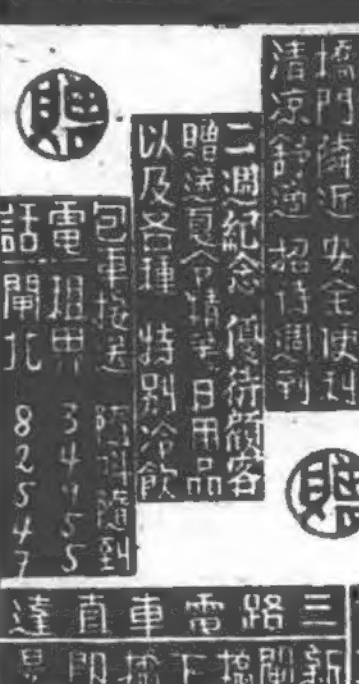 橋門隣近 安全便利
清凉舒適 招待週到
贈
二週紀念 優待顧客
贈送夏令精美日用品
以及各種 特別冷飲
贈
包車接送 隨叫隨到
電 租界 34955
話 閘北 82547
三路電車直達
新閘橋下橋即是